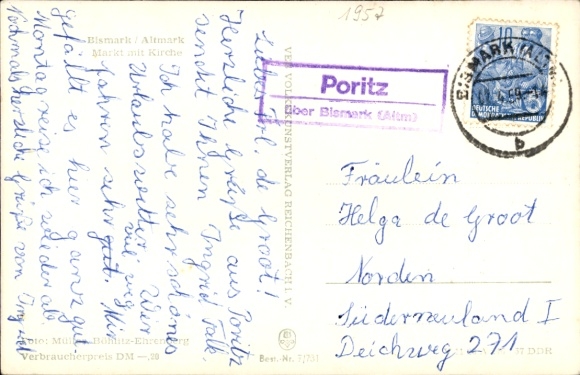 1957
Bismark / Altmark
Markt mit Kirche
Liebes Frl. de Groot!
Herzliche Grüße aus Poritz
sendet Ihnen Ingrid Falk.
Ich habe sehr schönes
Urlaubswetter. Wir
fahren viel weg
sehr gut. Mir
gefällt es hier ganz gut.
Montag reise ich wieder ab.
Nochmals herzliche Grüße von Ingrid
Foto: Müller, Bönitz-Ehrenberg
Verbraucherpreis DM —,20
Best.-Nr. 7/731
VEB VOLKSKUNSTVERLAG REICHENBACH I. V.
Poritz
über Bismark (Altm)
BISMARK (ALTM)
b
10
DEUTSCHE
DEMOKRATISCHE REPUBLIK
Fräulein
Helga de Groot
Norden
Süderneuland I
Deichweg 271
DDR